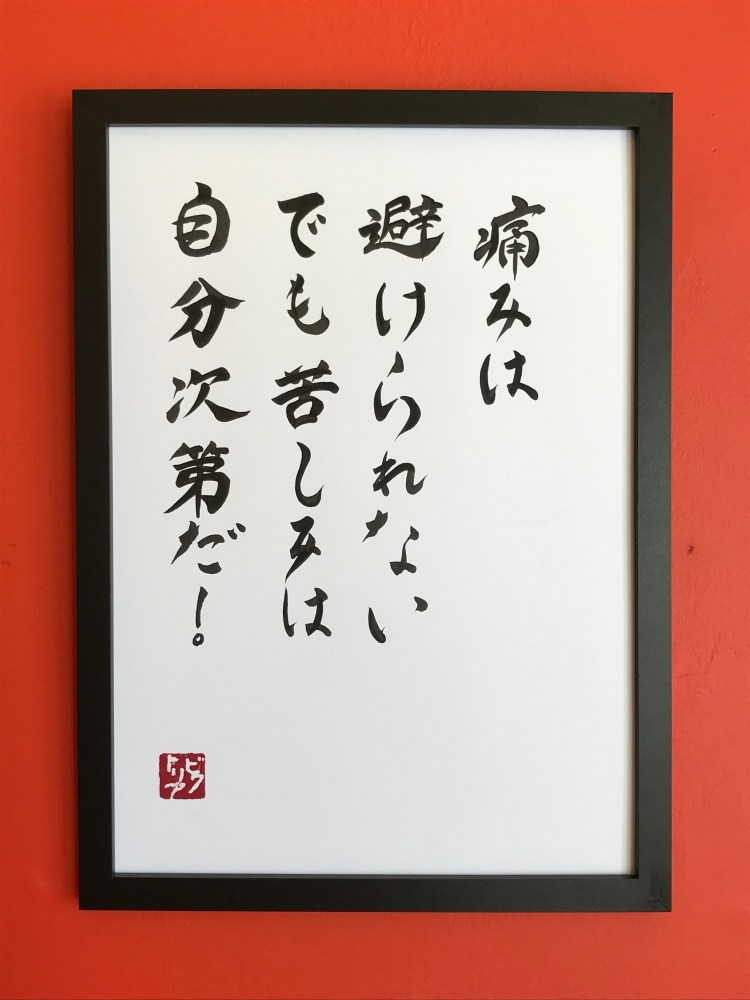 痛みは
避けられない
でも苦しみは
自分次第だ!
ビク
トリア